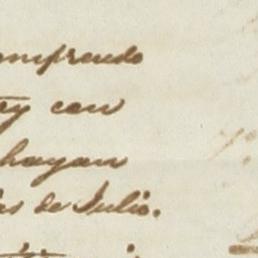 omprendo
ey con
hayan
as de Julio.